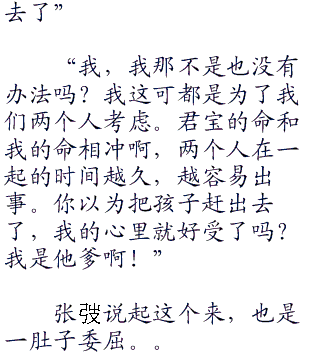 去了”
“我，我那不是也没有
办法吗？我这可都是为了我
们两个人考虑。君宝的命和
我的命相冲啊，两个人在一
起的时间越久，越容易出
事。你以为把孩子赶出去
了，我的心里就好受了吗？
我是他爹啊！”
张弢说起这个来，也是
一肚子委屈。。